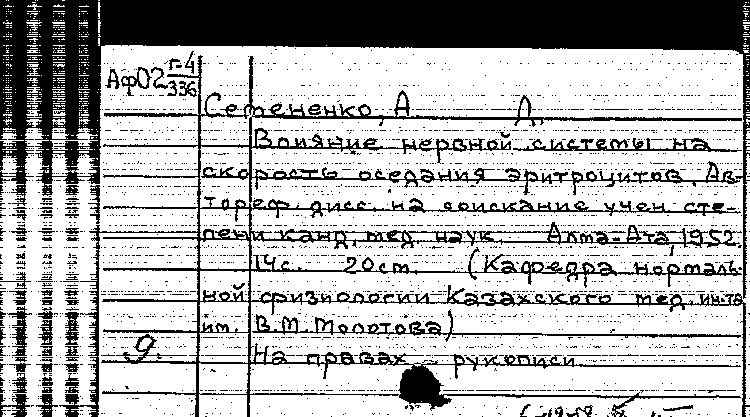 Аф02 г-4/336
Семененко, А. Л.
Влияние нервной системы на
скорость оседания эритроцитов. Ав-
тореф. дисс. на соискание учен. сте-
пени канд. мед. наук. Алма-Ата, 1952.
14с. 20см. (Кафедра нормаль-
ной физиологии Казахского мед. ин-та
им. В.М. Молотова)
9. На правах рукописи